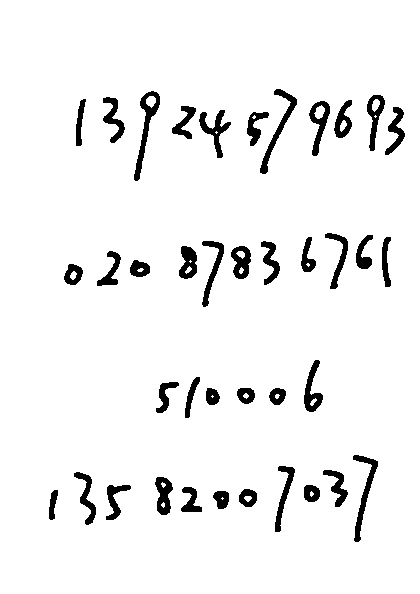 139 24579693
020 87836761
510006
135 82007037